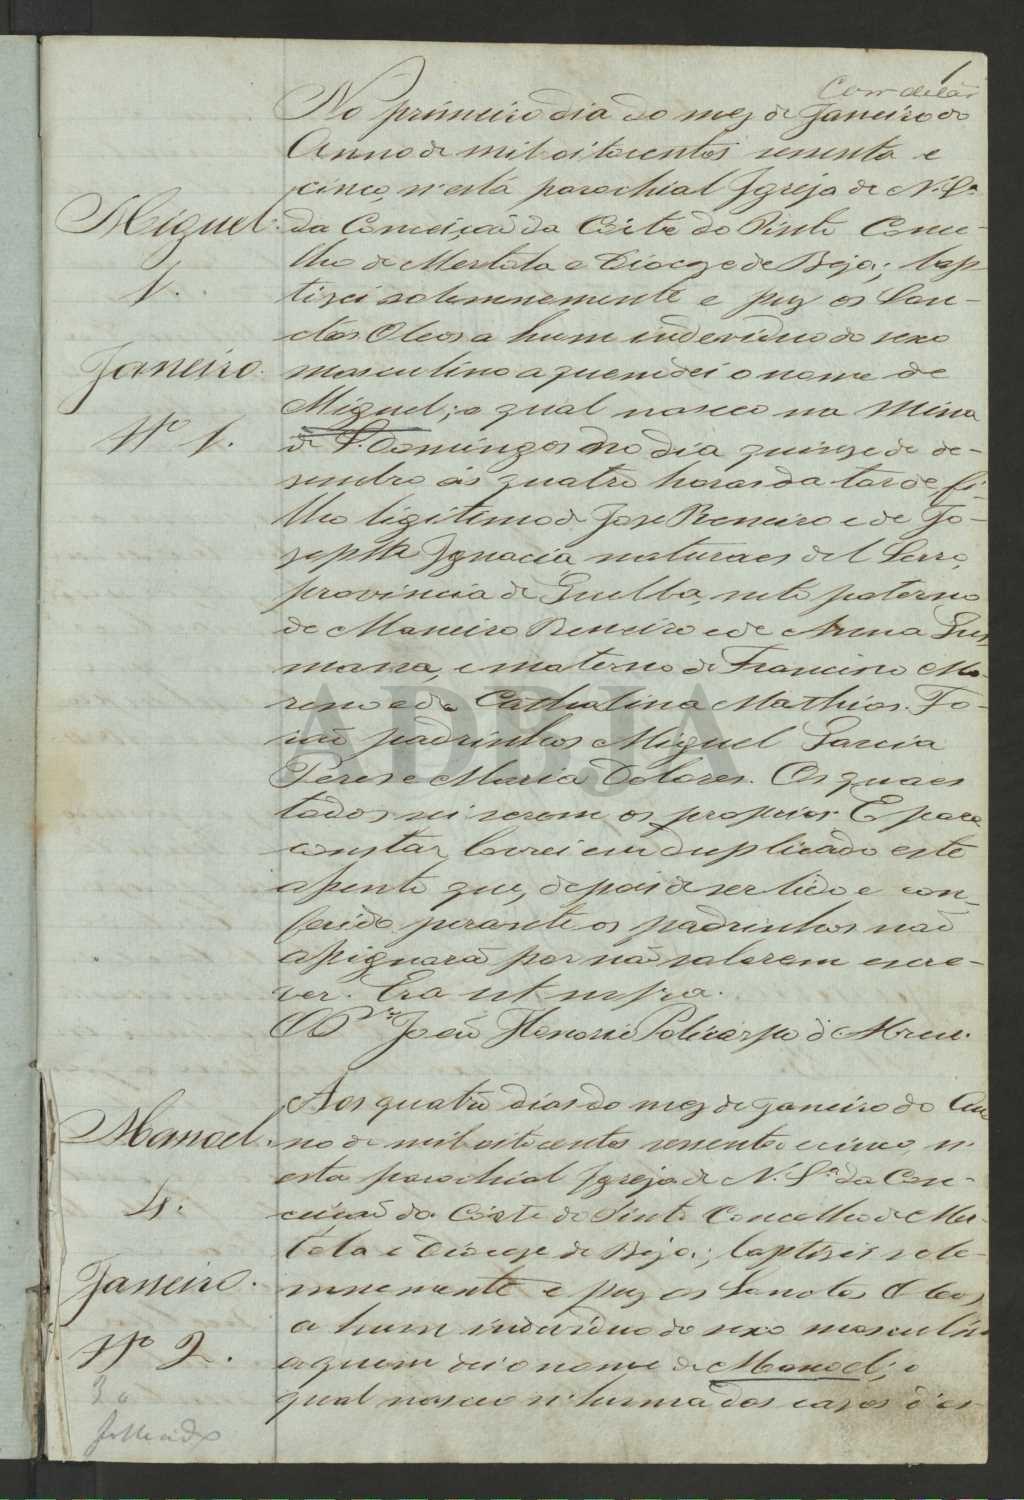 1
No primeiro dia do mez de Janeiro do
Anno de mil oitocentos sesenta e
cinco, n'esta parochial Igreja de N. Sª
Miguel. da Conceiçaõ da Córte do Pinto Conce-
lho de Mertola e Dioceze de Beja; bap-
1. tizei solemnemente e puz os San-
ctos Oleos a hum individuo do sexo
Janeiro. masculino a quem dei o nome de
Miguel; o qual nasceo na Mina
Nº 1. de S. Domingos no dia quinze de de-
sembro ás quatro horas da tarde, fi-
lho ligitimo de Jose Reneiro e de Jo-
sepha Ignacia naturaes del Serro,
provincia de Guelba, neto paterno
de Reneiro e de Gus
mana, e materno de Francisco Mo-
reno e de Catholina Mathias. Fo-
raõ padrinhos Miguel Garcia
Peres e Maria Dolores. Os quaes
todos sei serem os proprios. E para
constar lavrei em duplicado este
assento que, depois de ser lido e con-
ferido perante os padrinhos naõ
assignaraõ por naõ saberem escre-
ver. Era ut supra.
O Pºr Joaõ Honorio Policarpo d'Abreu.
Aos quatro dias do mez de Janeiro do An
Manoel. no de mil oitocentos sesenta e cinco, n'
esta parochial Igreja de N. Sª da Con-
4. ceiçaõ da Córte do Pinto Concelho de Mer-
tola e Diocese de Beja; baptizei sole-
Janeiro. mnemente e puz os Sanctos Oleos
a hum individuo do sexo masculino
Nº 2. a quem dei o nome de Manoel; o
qual nasceo n'huma das casas d'es-
fallecido
ADBJA